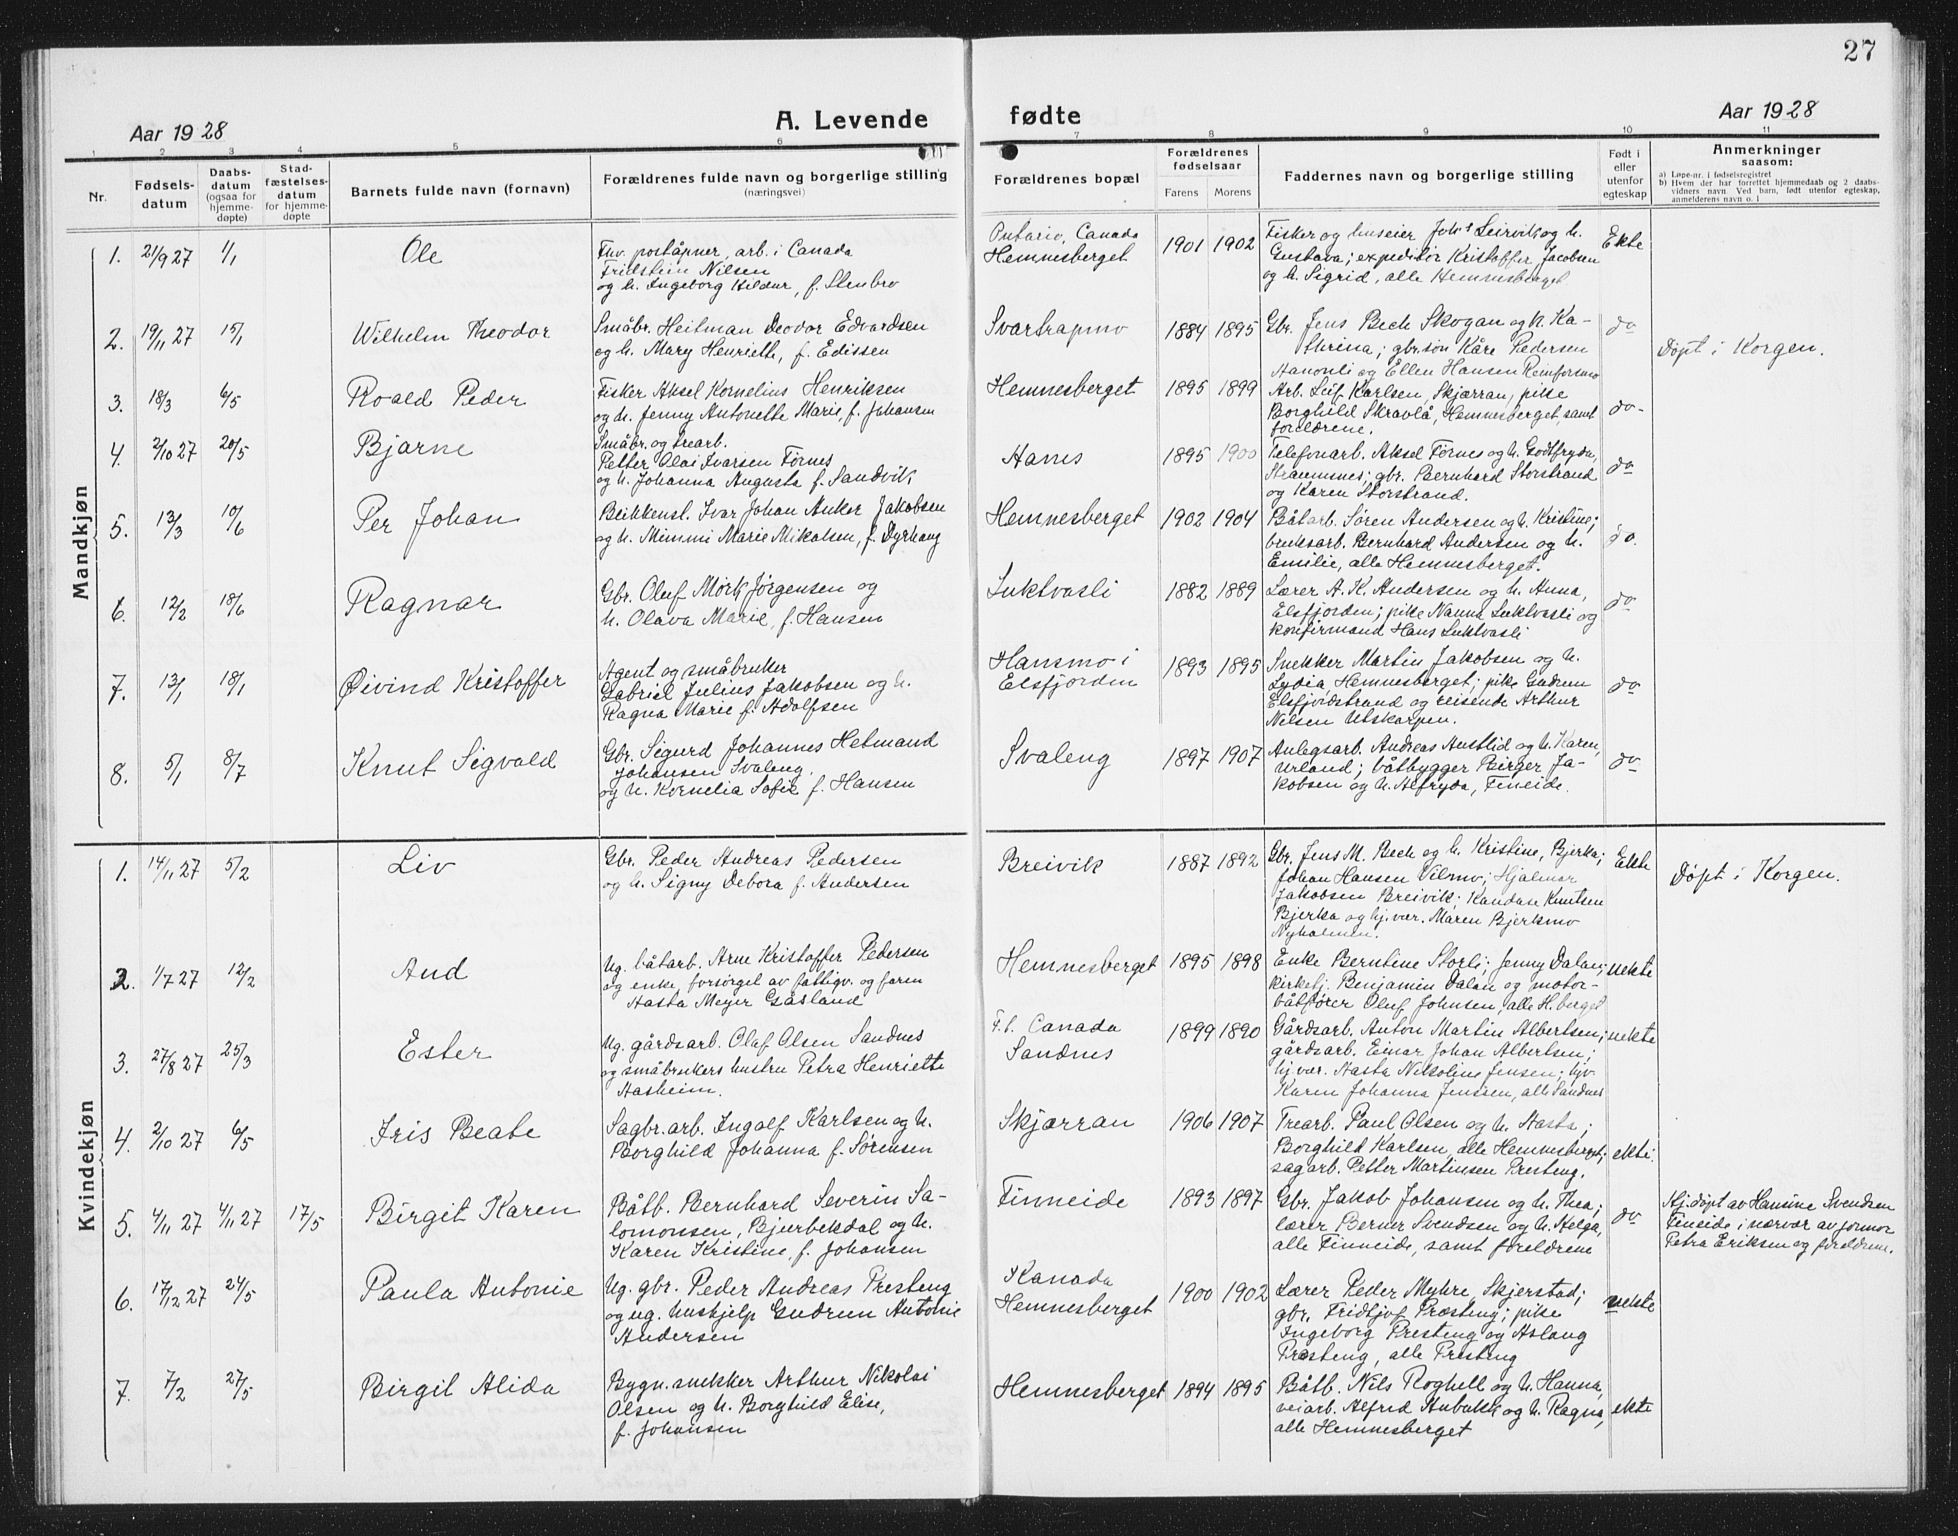 27
Aar 1928
A. Levende
fødte
Aar 1928
1 2 3 4 5 6 7 8 9 10 11
Nr.
Fødsels-
datum
Daabs-
datum
(ogsaa for
hjemme-
døpte)
Stad-
fæstelses-
datum
for hjemme-
døpte
Barnets fulde navn (fornavn)
Forældrenes fulde navn og borgerlige stilling
(næringsvei)
Forældrenes bopæl
Forældrenes
fødselsaar
Farens Morens
Faddernes navn og borgerlige stilling
Født i
eller
utenfor
egteskap
Anmerkninger
saasom:
a) Løpe-nr. i fødselsregistret
b) Hvem der har forrettet hjemmedaab og 2 daabs-
vidners navn. Ved barn, født utenfor egteskap,
anmelderens navn o. l
Mandkjøn
1. 21/9 27 1/1 Ole
Fhv. poståpner, arb. i Canada
Fridtstein Nilsen
og h. Ingeborg Hildur, f. Stenbro
Ontario, Canada
Hemnesberget
1901 1902
Fisker og huseier Johs Leirvik og h.
Gustava; expeditør Kristoffer Jacobsen
og h. Sigrid, alle Hemnesberget
Ekte
2. 19/11 27 15/1 Wilhelm Theodor
Småbr. Heitman Deodor Edvardsen
og h. Mary Henriette, f. Edissen
Svartrapmo
1884 1895
Gbr. Jens Bech Skogan og h. Ka-
thrina; gbr.søn Kåre Pedersen
Aanonli og Ellen Hansen Remforsmo
do
Døpt i Korgen.
3. 18/3 6/5 Roald Peder
Fisker Aksel Kornelius Henriksen
og h. Jenny Antonette Marie, f. Johansen
Hemnesberget
1895 1899
Arb. Leif Karlsen, Skjærran, pike
Borghild Skravlå, Hemnesberget, samt
foreldrene.
do-
4. 2/10 27 20/5 Bjarne
Småbr. og trearb.
Petter Olai Ivarsen Førnes
og h. Johanna Augusta f. Sandvik,
Hanes
1895 1900
Telefonarb. Aksel Førnes og h. Godtfryda,
Straumsnes; gbr. Bernhard Storstrand
og Karen Storstrand.
do
5. 13/3 10/6 Per Johan
Blikkensl. Ivar Johan Anker Jakobsen
og h. Mimmi Marie Mikalsen, f. Dyrhaug
Hemnesberget
1902 1904
Båtarb. Søren Andersen og h. Kristine;
bruksarb. Bernhard Andersen og h.
Emilie, alle Hemnesberget.
do.
6. 12/2 18/6 Ragnar
Gbr. Oluf Mørk Jørgensen og
h. Olava Marie, f. Hansen
Luktvasli
1882 1889
Lærer A. K. Andersen og h. Anna,
Elsfjorden; pike Nanna Luktvasli og
konfirmand Hans Luktvasli
do
7. 13/1 18/1 Øivind Kristoffer
Agent og småbruker
Gabriel Julius Jakobsen og h.
Ragna Marie f. Adolfsen
Hansmo i
Elsfjorden
1893 1895
Snekker Martin Jakobsen og h.
Lydia, Hemnesberget; pike Gudrun
Elsfjordstrand og reisende Arthur
Nilsen Utskarpen.
do
8. 5/1 8/7 Knut Sigvald
Gbr. Sigurd Johannes Hetmand
Johansen Svaleng.
og h. Kornelia Sofie f. Hansen
Svaleng
1897 1907
Anlegsarb. Andreas Austlid og h. Karen,
Urland; båtbygger Birger Ja-
kobsen og h. Alfryda, Fineide.
do
Kvindekjøn
1. 14/11 27 5/2 Liv
Gbr. Peder Andreas Pedersen
og h. Signy Debora f. Andersen
Breivik
1887 1892
Gbr. Jens M. Bech og h. Kristine, Bjerka;
Johan Hansen Vilmo; Hjalmar
Jakobsen Breivik; Kandase Knutsen
Bjerka og hj.vær. Maren Bjerkmo
Nyholmen.
Ekte
Døpt i Korgen.
2. 1/7 27 12/2 Aud
Ug. båtarb. Arne Kristoffer Pedersen
og enke, forsørget av fattigv. og faren
Aasta Meyer Gåsland
Hemnesberget
1895 1898
Enke Berntine Storli; Jenny Dalan;
kirketj. Benjamin Dalan og motor-
båtfører Oluf Johnsen, alle H.berget
uekte
3. 27/8 27 25/3 Ester
Ug. gårdsarb. Olaf Olsen Sandnes
og småbrukers hustru Petra Henriette
Aasheim.
F.t. Canada
Sandnes
1899 1890
Gårdsarb. Anton Martin Albertsen;
gårdsarb. Einar Johan Albertsen;
hj.vær. Aasta Nikoline Jensen; hjv.
Karen Johanna Jenssen, alle Sandnes
uekte
4. 2/10 27 6/5 Iris Beate
Sagbr.arb. Ingolf Karlsen og h.
Borghild Johanna f. Sørensen
Skjærran
1906 1907
Trearb. Paul Olsen og h. Aasta;
Borghild Karlsen, alle Hemnesberget;
sagarb. Petter Martinsen Presteng.
ekte.
5. 4/11 27 4/11 27 17/5 Birgit Karen
Båtb. Bernhard Severin Sa-
lomonsen, Bjurbekdal og h.
Karen Kristine, f. Johansen
Finneide
1893 1897
Gbr. Jakob Johansen og h. Thea;
lærer Berner Svendsen og h. Helga,
alle Finneide, samt foreldrene
do
Hj.døpt av Hansine Svendsen
Fineide i nærvær av jormor
Petra Eriksen og foreldrene.
6. 17/12 27 24/5 Paula Antonie
Ug. gbr. Peder Andreas Presteng
og ug. hushjelp Gudrun Antonie
Andersen
Kanada
Hemnesberget
1900 1902
Lærer Peder Myhre, Skjerstad;
gbr. Fridtjof Præsteng; pike
Ingeborg Presteng og Aslaug
Presteng, alle Presteng
uekte
7. 7/2 27/5 Birgit Alida
Bygn.snekker Arthur Nikolai
Olsen og h. Borghild Elise,
f. Johansen
Hemnesberget
1894 1895
Båtb. Nils Roghell og h. Hanna,
veiarb. Alfred Aubakk og h. Ragna,
alle Hemnesberget
ekte